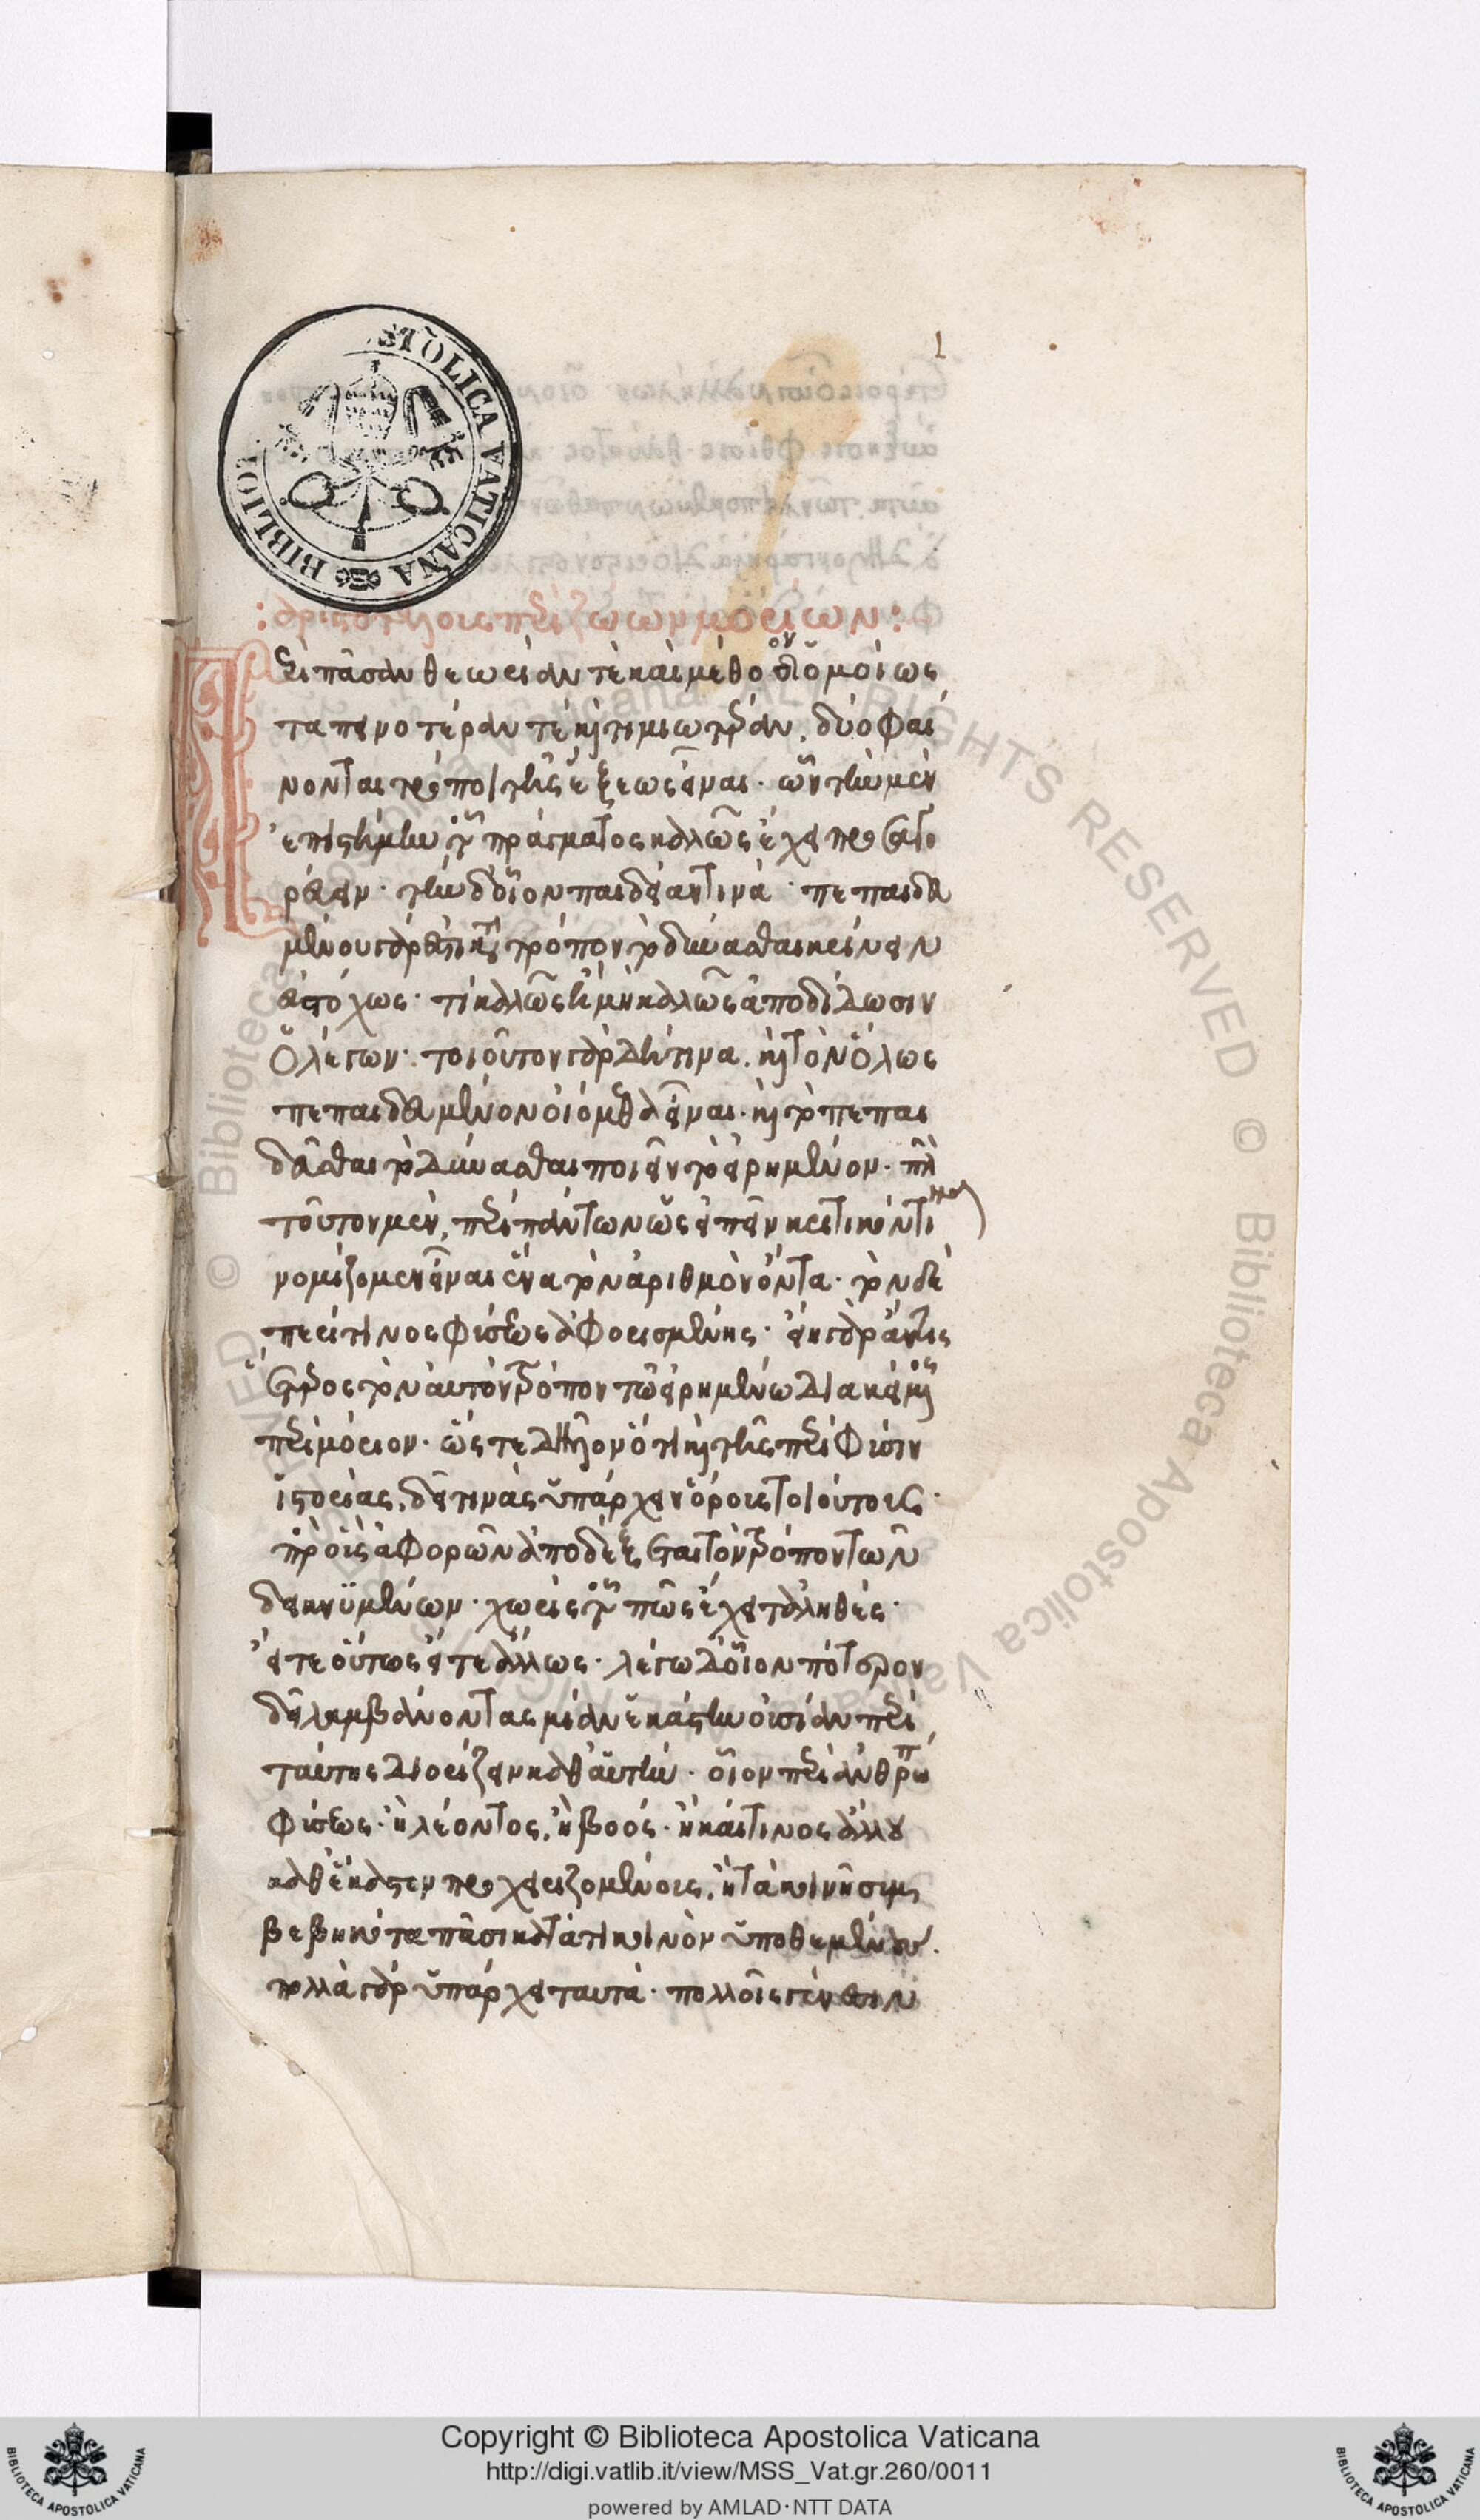 1
:ἀριστοτέλους περὶ ζώων μορίων:
Περὶ πᾶσαν θεωρίαν τὲ καὶ μέθοδον ὁμοίως
ταπεινοτέραν τὲ καὶ τιμιωτέραν, δύο φαί
νονται τρόποι τῆς ἕξεως εἶναι· ὧν τὴν μὲν
ἐπιστήμην τοῦ πράγματος καλῶς ἔχει προσαγο
ρεύειν· τὴν δ' οἷον παιδείαν τινά· πεπαιδευ
μένου γάρ ἐστι κατὰ τρόπον τὸ δύνασθαι κρίνειν
εὐστόχως· τί καλῶς ἢ μὴ καλῶς ἀποδίδωσιν
ὁ λέγων· τοιοῦτον γὰρ δή τινα καὶ τὸν ὅλως
πεπαιδευμένον οἰόμεθα εἶναι· καὶ τὸ πεπαι
δεῦσθαι τὸ δύνασθαι ποιεῖν τὸ εἰρημένον· πλὴν
τοῦτον μὲν, περὶ πάντων ὡς εἰπεῖν κριτικόν τινα
νομίζομεν εἶναι ἕνα τὸν ἀριθμὸν ὄντα· τὸν δὲ
περί τινος φύσεως ἀφορισμένης· εἴη γὰρ ἄν τις
ἕτερος τὸν αὐτὸν τρόπον τῶ εἰρημένω διακείμενος
περὶ μόριον· ὥστε δῆλον ὅτι καὶ τῆς περὶ φύσιν
ἱστορίας, δεῖ τινὰς ὑπάρχειν ὅρους τοιούτους·
πρὸς οὓς ἀφορῶν ἀποδέξεται τὸν τρόπον τῶν
δεικνυμένων· χωρὶς τοῦ πῶς ἔχει τἀληθές·
εἴτε οὕτως εἴτε ἄλλως· λέγω δ' οἷον πότερον
δεῖ λαμβάνοντας μίαν ἑκάστην οὐσίαν περὶ
ταύτης διορίζειν καθ' αὑτήν· οἷον περὶ ἀνθρώπου
φύσεως· ἢ λέοντος, ἢ βοός· ἢ καί τινος ἄλλου
καθ' ἕκαστον προχειριζομένους, ἢ τὰ κοινῇ συμ
βεβηκότα πᾶσι κατά τι κοινὸν ὑποθεμένους.
πολλὰ γὰρ ὑπάρχει ταυτὰ· πολλοῖς γένεσιν
BIBLIOTECA APOSTOLICA VATICANA
Copyright © Biblioteca Apostolica Vaticana
http://digi.vatlib.it/view/MSS_Vat.gr.260/0011
powered by AMLAD·NTT DATA